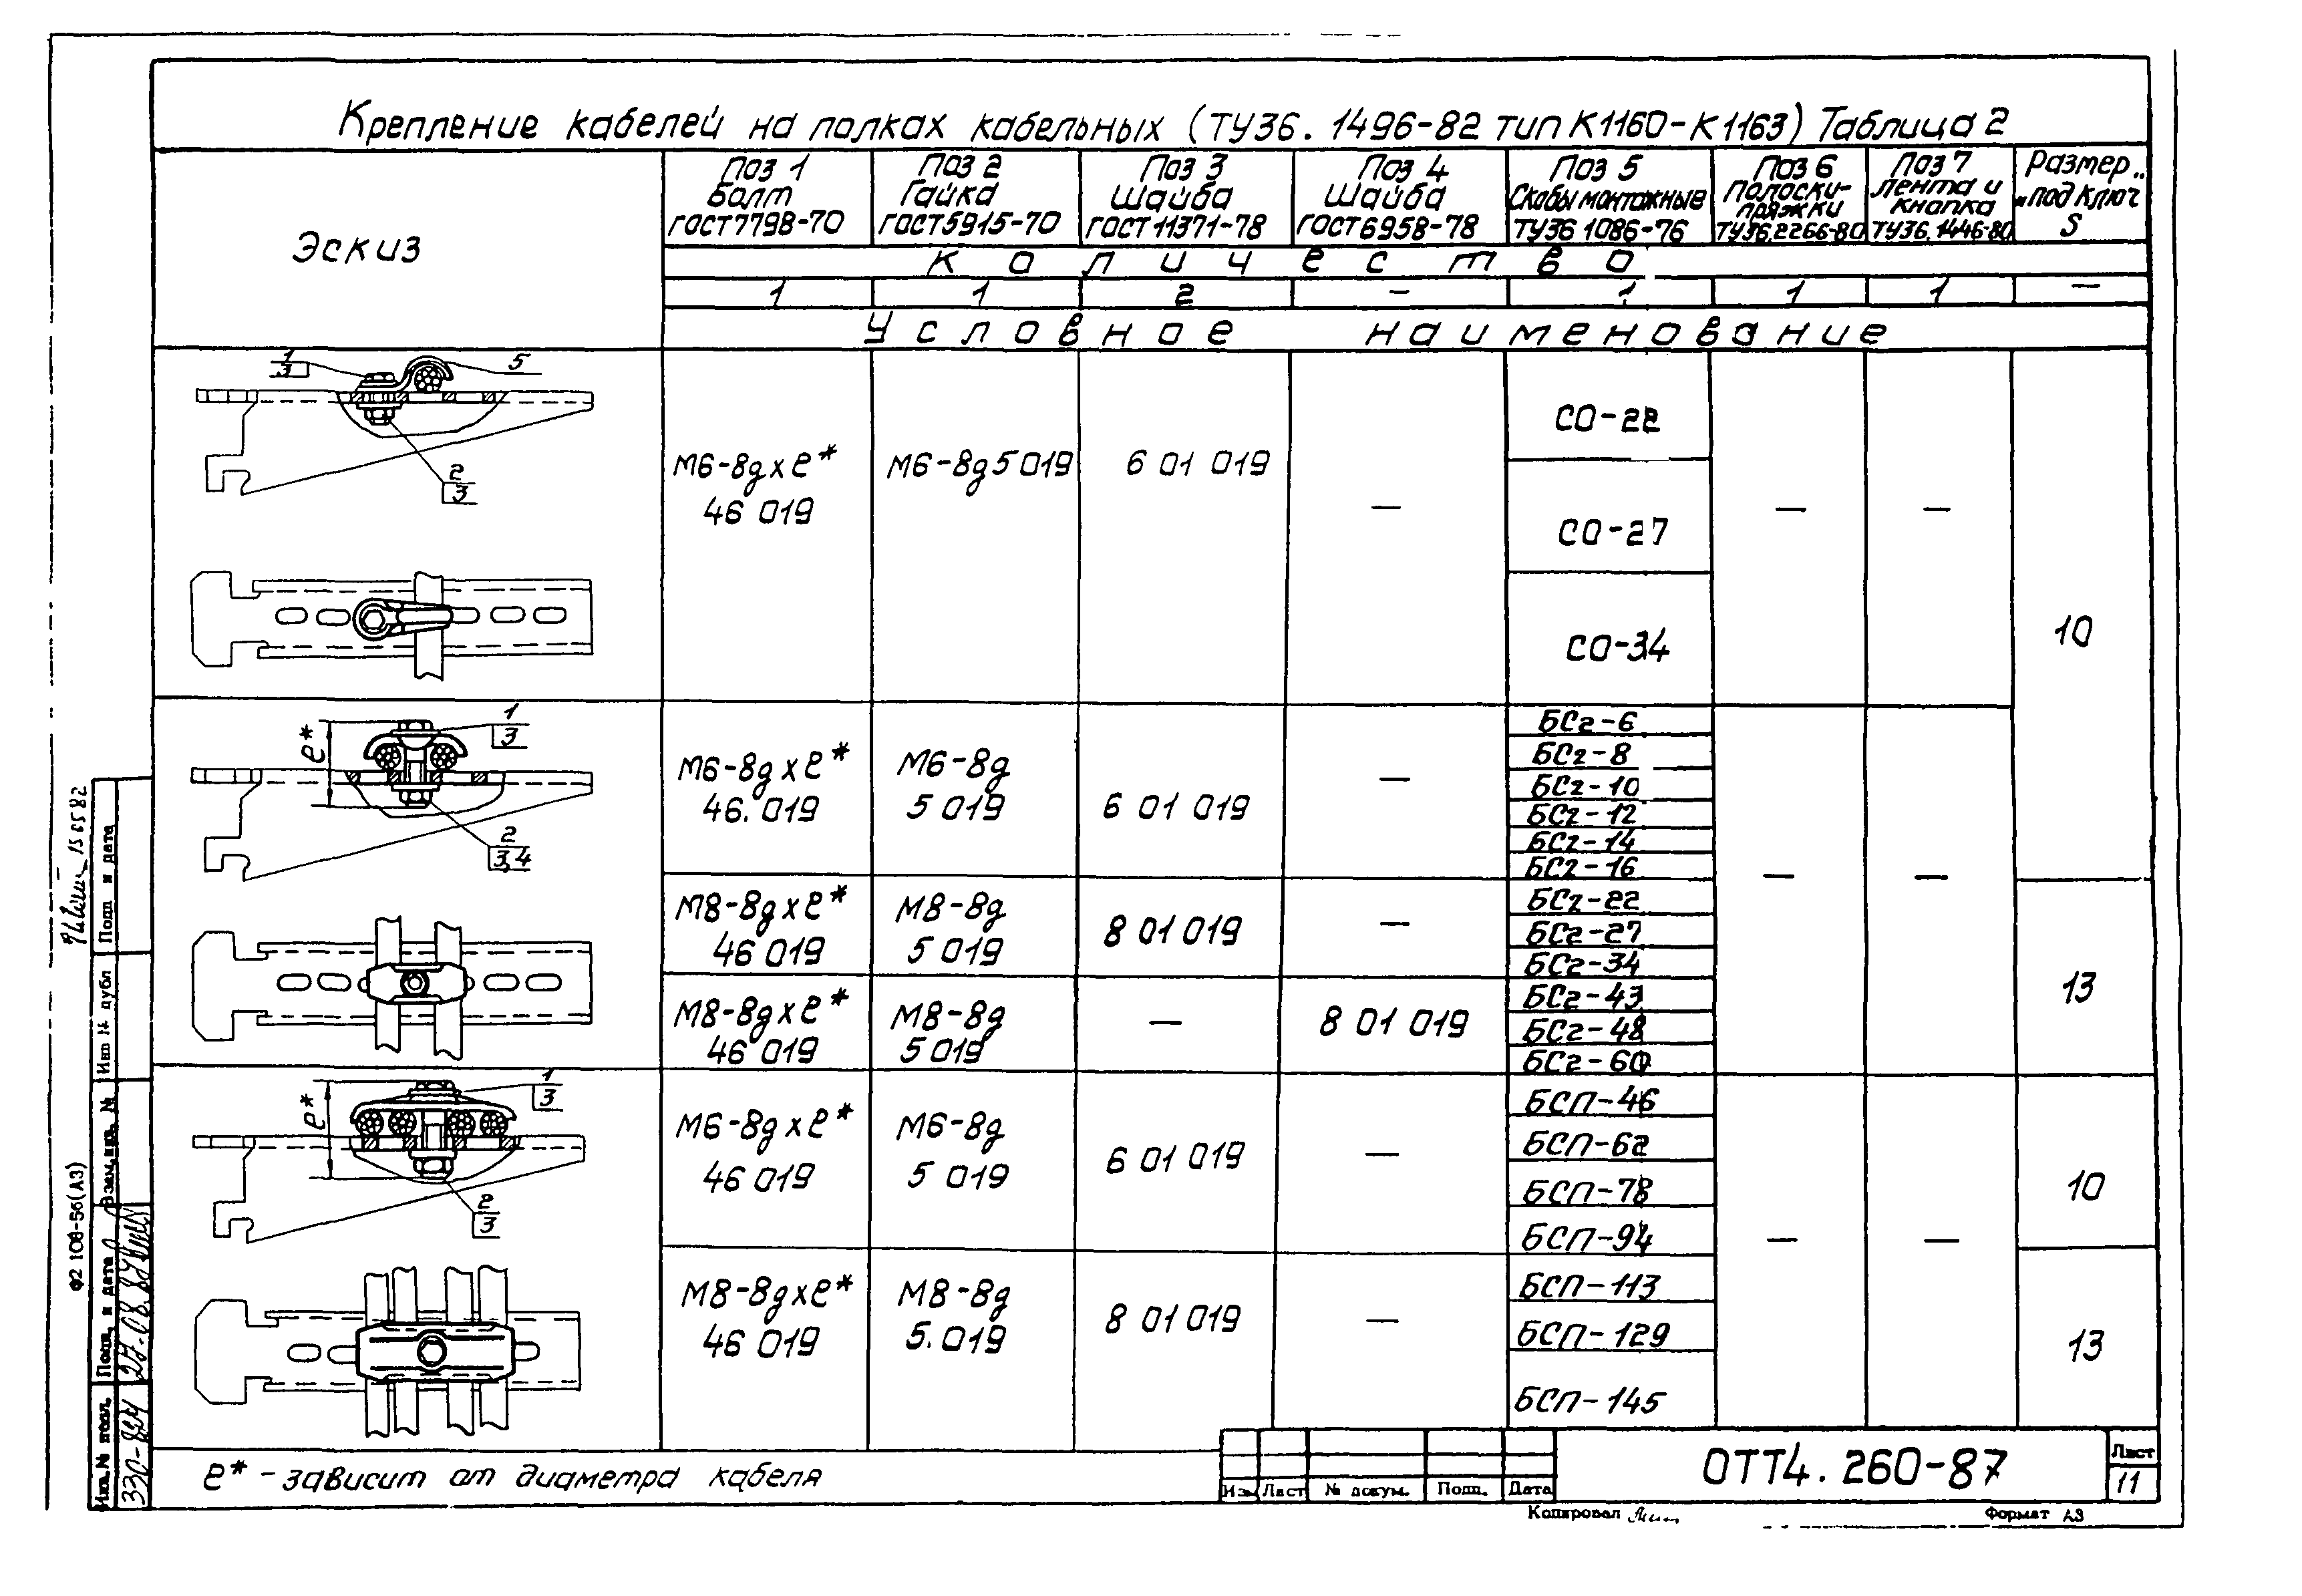 Крепление кабелей на полках кабельных (ТУ36.1496-82 тип К1160-К1163) Таблица 2
Эскиз
Поз 1
Болт
ГОСТ7798-70
Поз 2
Гайка
ГОСТ5915-70
Поз 3
Шайба
ГОСТ11371-78
Поз 4
Шайба
ГОСТ6958-78
Поз 5
Скобы монтажные
ТУ36 1086-76
Поз 6
Полоски-
пряжки
ТУ36.2266-80
Поз 7
Лента и
кнопка
ТУ36.1446-80
Размер
„под ключ”
S
Количество
1 1 2 – 1 1 1 –
Условное наименование
1
3
5
2
3
М6-8gxℓ*
46 019
М6-8g5019
6 01 019
–
СО-22
СО-27
СО-34
–
–
10
ℓ*
1
3
2
3,4
М6-8gxℓ*
46.019
М6-8g
5 019
6 01 019
–
БСг-6
БСг-8
БСг-10
БСг-12
БСг-14
БСг-16
М8-8gxℓ*
46 019
М8-8g
5 019
8 01 019
–
БСг-22
БСг-27
БСг-34
–
–
13
М8-8gxℓ*
46 019
М8-8g
5 019
–
8 01 019
БСг-43
БСг-48
БСг-60
ℓ*
1
3
2
3
М6-8gxℓ*
46 019
М6-8g
5 019
6 01 019
–
БСП-46
БСП-62
БСП-78
БСП-94
–
–
10
М8-8gxℓ*
46 019
М8-8g
5.019
8 01 019
–
БСП-113
БСП-129
БСП-145
13
ℓ* - зависит от диаметра кабеля
Изм Лист № докум. Подп. Дата
ОТТ4.260-87
Лист
11
Копировал
Формат А3
Ф2 108-56(А3)
Подп и дата
15 05 82
Инв № дубл
Взам.инв. №
Подп. и дата
27.08.87
Инв.№ подл.
330-824